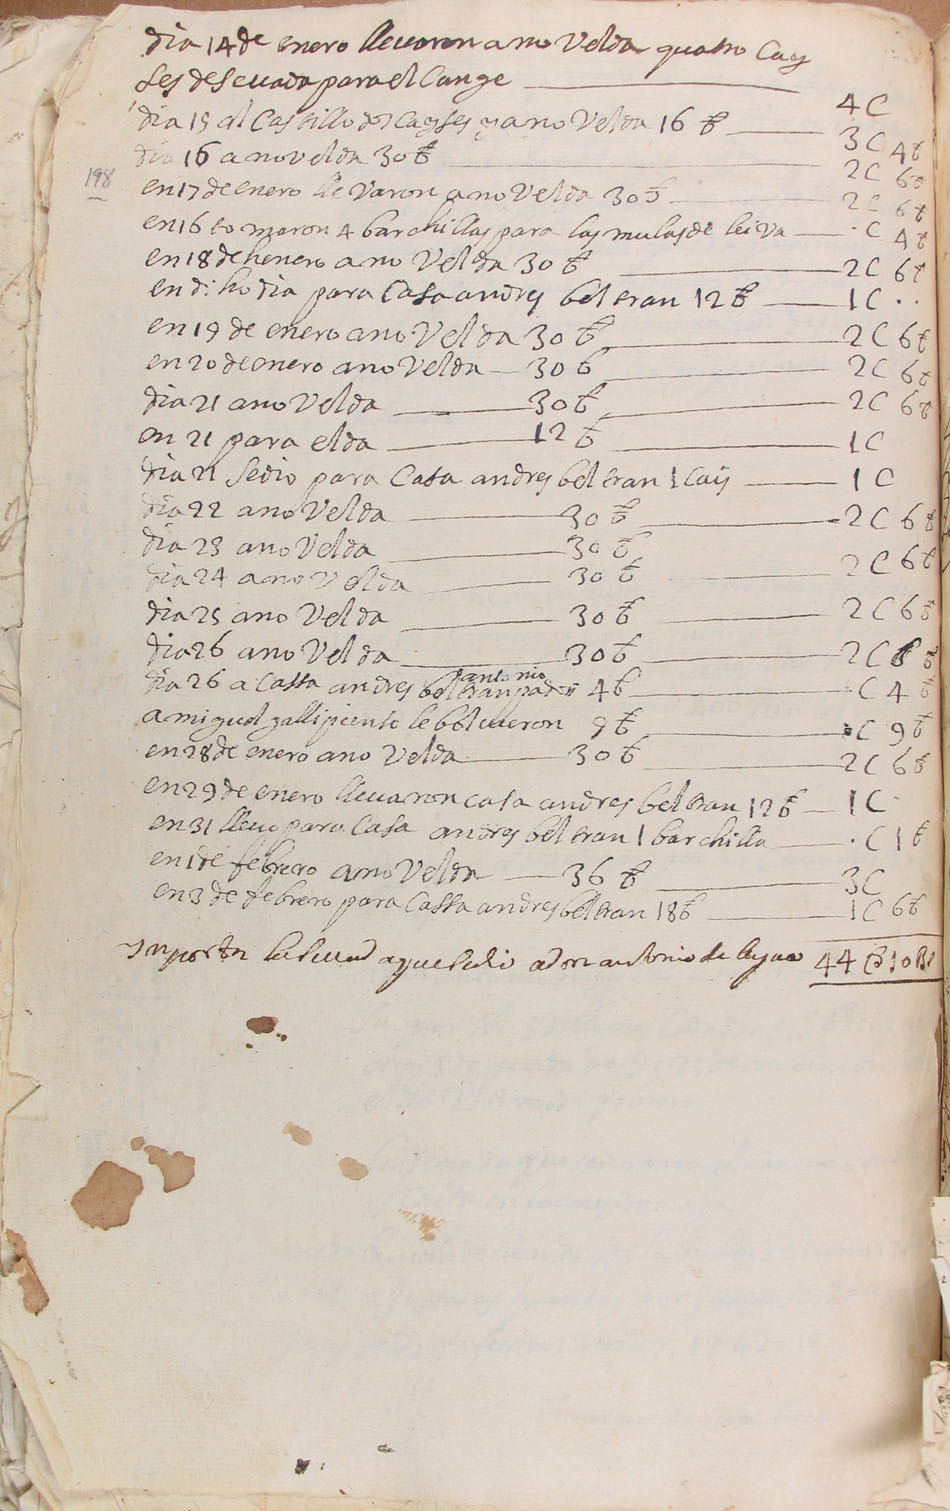 dia 14 de enero lleuaron a no Velda quatro Cay
ses de Seuada para el Cange
4 C
dia 15 al Castillo dos Cayses y a no Velda 16 b 3 C 4 b
dia 16 a no velda 30 b 2 C 6 b
198
en 17 de enero lle Varon a no Velda 30 b 2 C 6 b
en 16 to maron 4 barchillas para las mulas de leiva . C 4 b
en 18 de henero a no Velda 30 b 2 C 6 b
en di:ho dia para Casa andres beltran 12 b 1 C ..
en 19 de enero a no Velda 30 b 2 C 6 b
en 20 de enero a no Velda 30 b 2 C 6 b
dia 21 a no Velda 30 b 2 C 6 b
en 21 para elda 12 b 1 C
dia 21 Sedio para Casa andres beltran 1 Caij 1 C
dia 22 a no Velda 30 b 2 C 6 b
dia 23 a no Velda 30 b
dia 24 a no Velda 30 b 2 C 6 b
dia 25 a no Velda 30 b 2 C 6 b
dia 26 a no Velda 30 b 2 C 6 b
antonio
dia 26 a Cassa andres beltran 4 b . C 4 b
a miguel gallipienso le bolvieron 9 b . C 9 b
en 28 de enero a no Velda 30 b 2 C 6 b
en 29 de enero lleuaron casa andres beltran 12 b 1 C .
en 31 lleuo para Casa andres beltran 1 barchilla . C 1 b
en 1 de febrero a no Velda 36 b 3 C
en 3 de febrero para Cassa andres beltran 18 b 1 C 6 b
Ymporta la seuada que salio a don antonio de 44 C 10 B